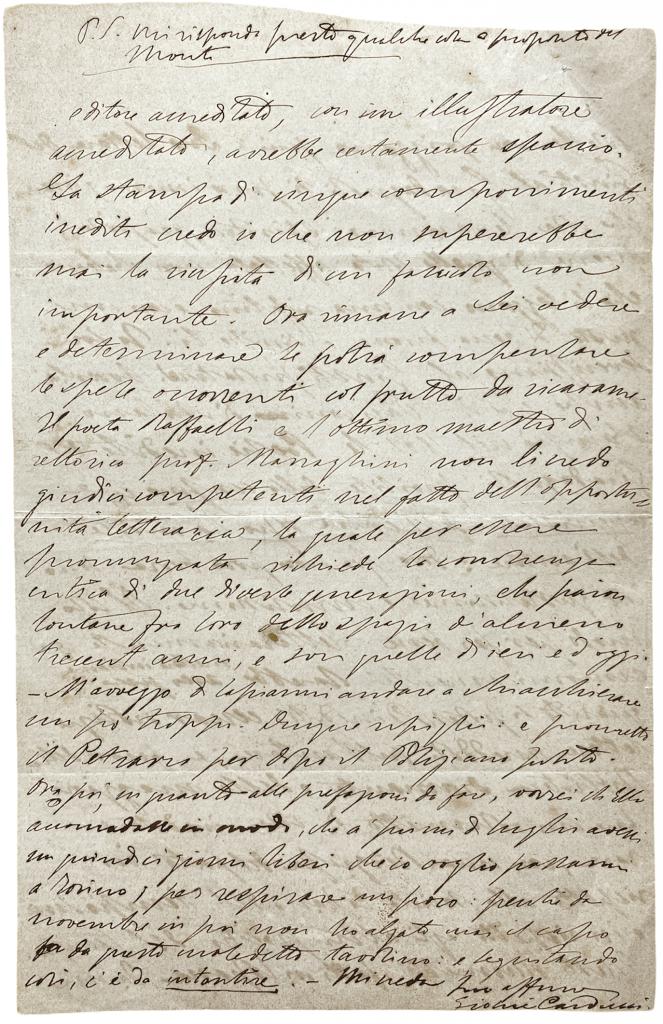 P.S. Mi risponda presto qualche cosa a proposito del
Monti
editore accreditato, con un illustratore
accreditato, avrebbe certamente spaccio.
La stampa di cinque componimenti
inediti credo io che non supererebbe
mai la riuscita di un fascicolo non
importante. Ora rimane a Lei vedere
e determinare se potrà compensare
le spese occorrenti col frutto da ricavarne.
Il poeta Raffaelli e l'ottimo maestro di
rettorica prof. Marraghini non li credo
giudici competenti nel fatto dell'opportu=
nità letteraria, la quale per essere
pronunziata richiede la conoscenza
critica di due diverse generazioni, che paion
lontane fra loro dello spazio d'almeno
trecent'anni, e son quelle di ieri e d'oggi.
– M'avveggo di lasciarmi andare a chiacchierare
un po' troppo. Dunque ripiglio: e prometto
il Petrarca per dopo il Poliziano subito.
Ora poi, in quanto alle prefazioni da fare, vorrei ch'Ella
accomodasse in modo, che a' primi di luglio avessi
un quindici giorni liberi che io voglio passarmi
a Torino, per respirare un poco: perché da
novembre in poi non ho alzato mai il capo
da questo maledetto tavolino: e seguitando
così, c'è da intontire. – Mi creda
Suo affmo
Giosuè Carducci.